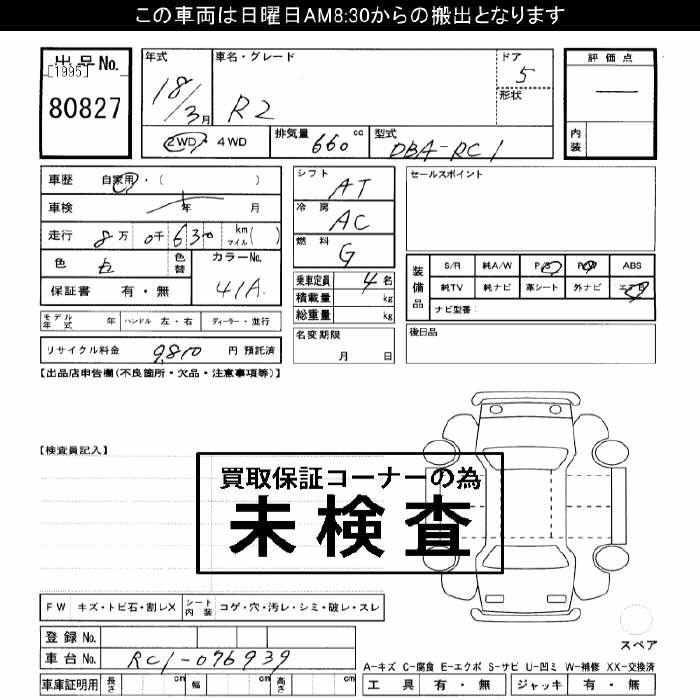 この車両は日曜日AM8:30からの搬出となります
出品No.
[1995]
80827
年式
18/3月
車名・グレード
R2
ドア
5
形状
評価点
—
内装
2WD・4WD
排気量 660 cc
型式 DBA-RC1
車歴 自家用・( )
車検 年 月
走行 8万 0千 630 km マイル( )
色 白
色替
カラーNo.
41A
保証書 有・無
シフト AT
冷房 AC
燃料 G
乗車定員 4名
積載量 kg
総重量 kg
名変期限
月 日
セールスポイント
装備品
S/R 純A/W P/S P/W ABS
純TV 純ナビ 革シート 外ナビ エアB
ナビ型番:
後日品
モデル年式 年 ハンドル 左・右 ディーラー・並行
リサイクル料金 9,810 円 預託済
【出品店申告欄(不良箇所・欠品・注意事項等)】
【検査員記入】
買取保証コーナーの為
未検査
FW キズ・トビ石・割レX シート内装 コゲ・穴・汚レ・シミ・破レ・スレ
スペア
登録No.
車台No. RC1-076939
A-キズ C-腐食 E-エクボ S-サビ U-凹ミ W-補修 XX-交換済
車庫証明用 長さ cm 幅 cm 高さ cm
工具 有・無 ジャッキ 有・無